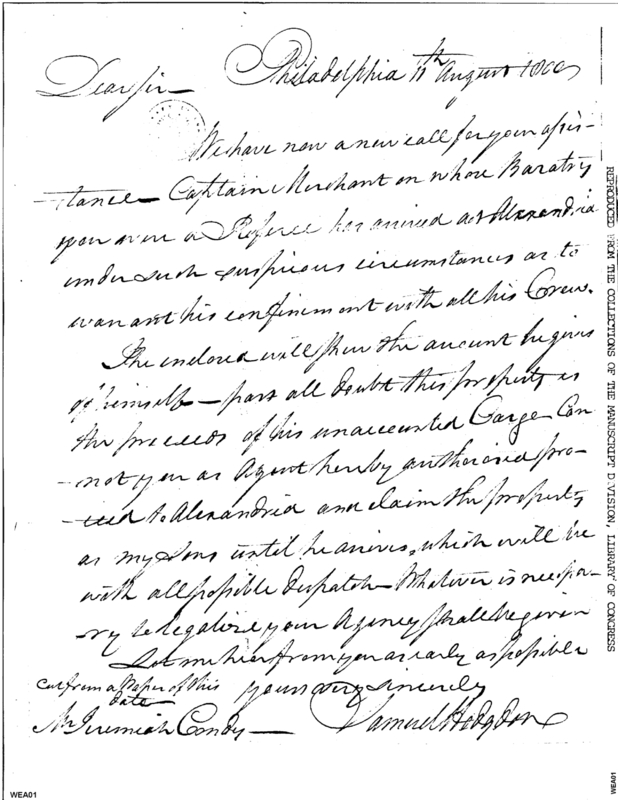 Philadelphia 11th August 1800
Dear Sir—
We have now a new call for your assis-
-tance— Captain Merchant on whose Baratry
you were a Referee has arrived at Alexandria
under such suspicious circumstances as to
warrant his confinement with all his Crew.
The enclosed will shew the account he gives
of himself— past all doubt this property is
the proceeds of his unaccounted Cargo Can
not you as Agent hereby authorised pro-
-ceed to Alexandria and claim the property
as my Sons until he arrives, which will be
with all possible dispatch— Whatever is necessa-
-ry to legalize your Agency shall be given
Let me hear from you as early as possible
yours very sincerely
Samuel Hodgdon
cut from a Paper of this
date
Mr Jeremiah Condy—
REPRODUCED FROM THE COLLECTIONS OF THE MANUSCRIPT DIVISION, LIBRARY OF CONGRESS
WEA01
WEA01